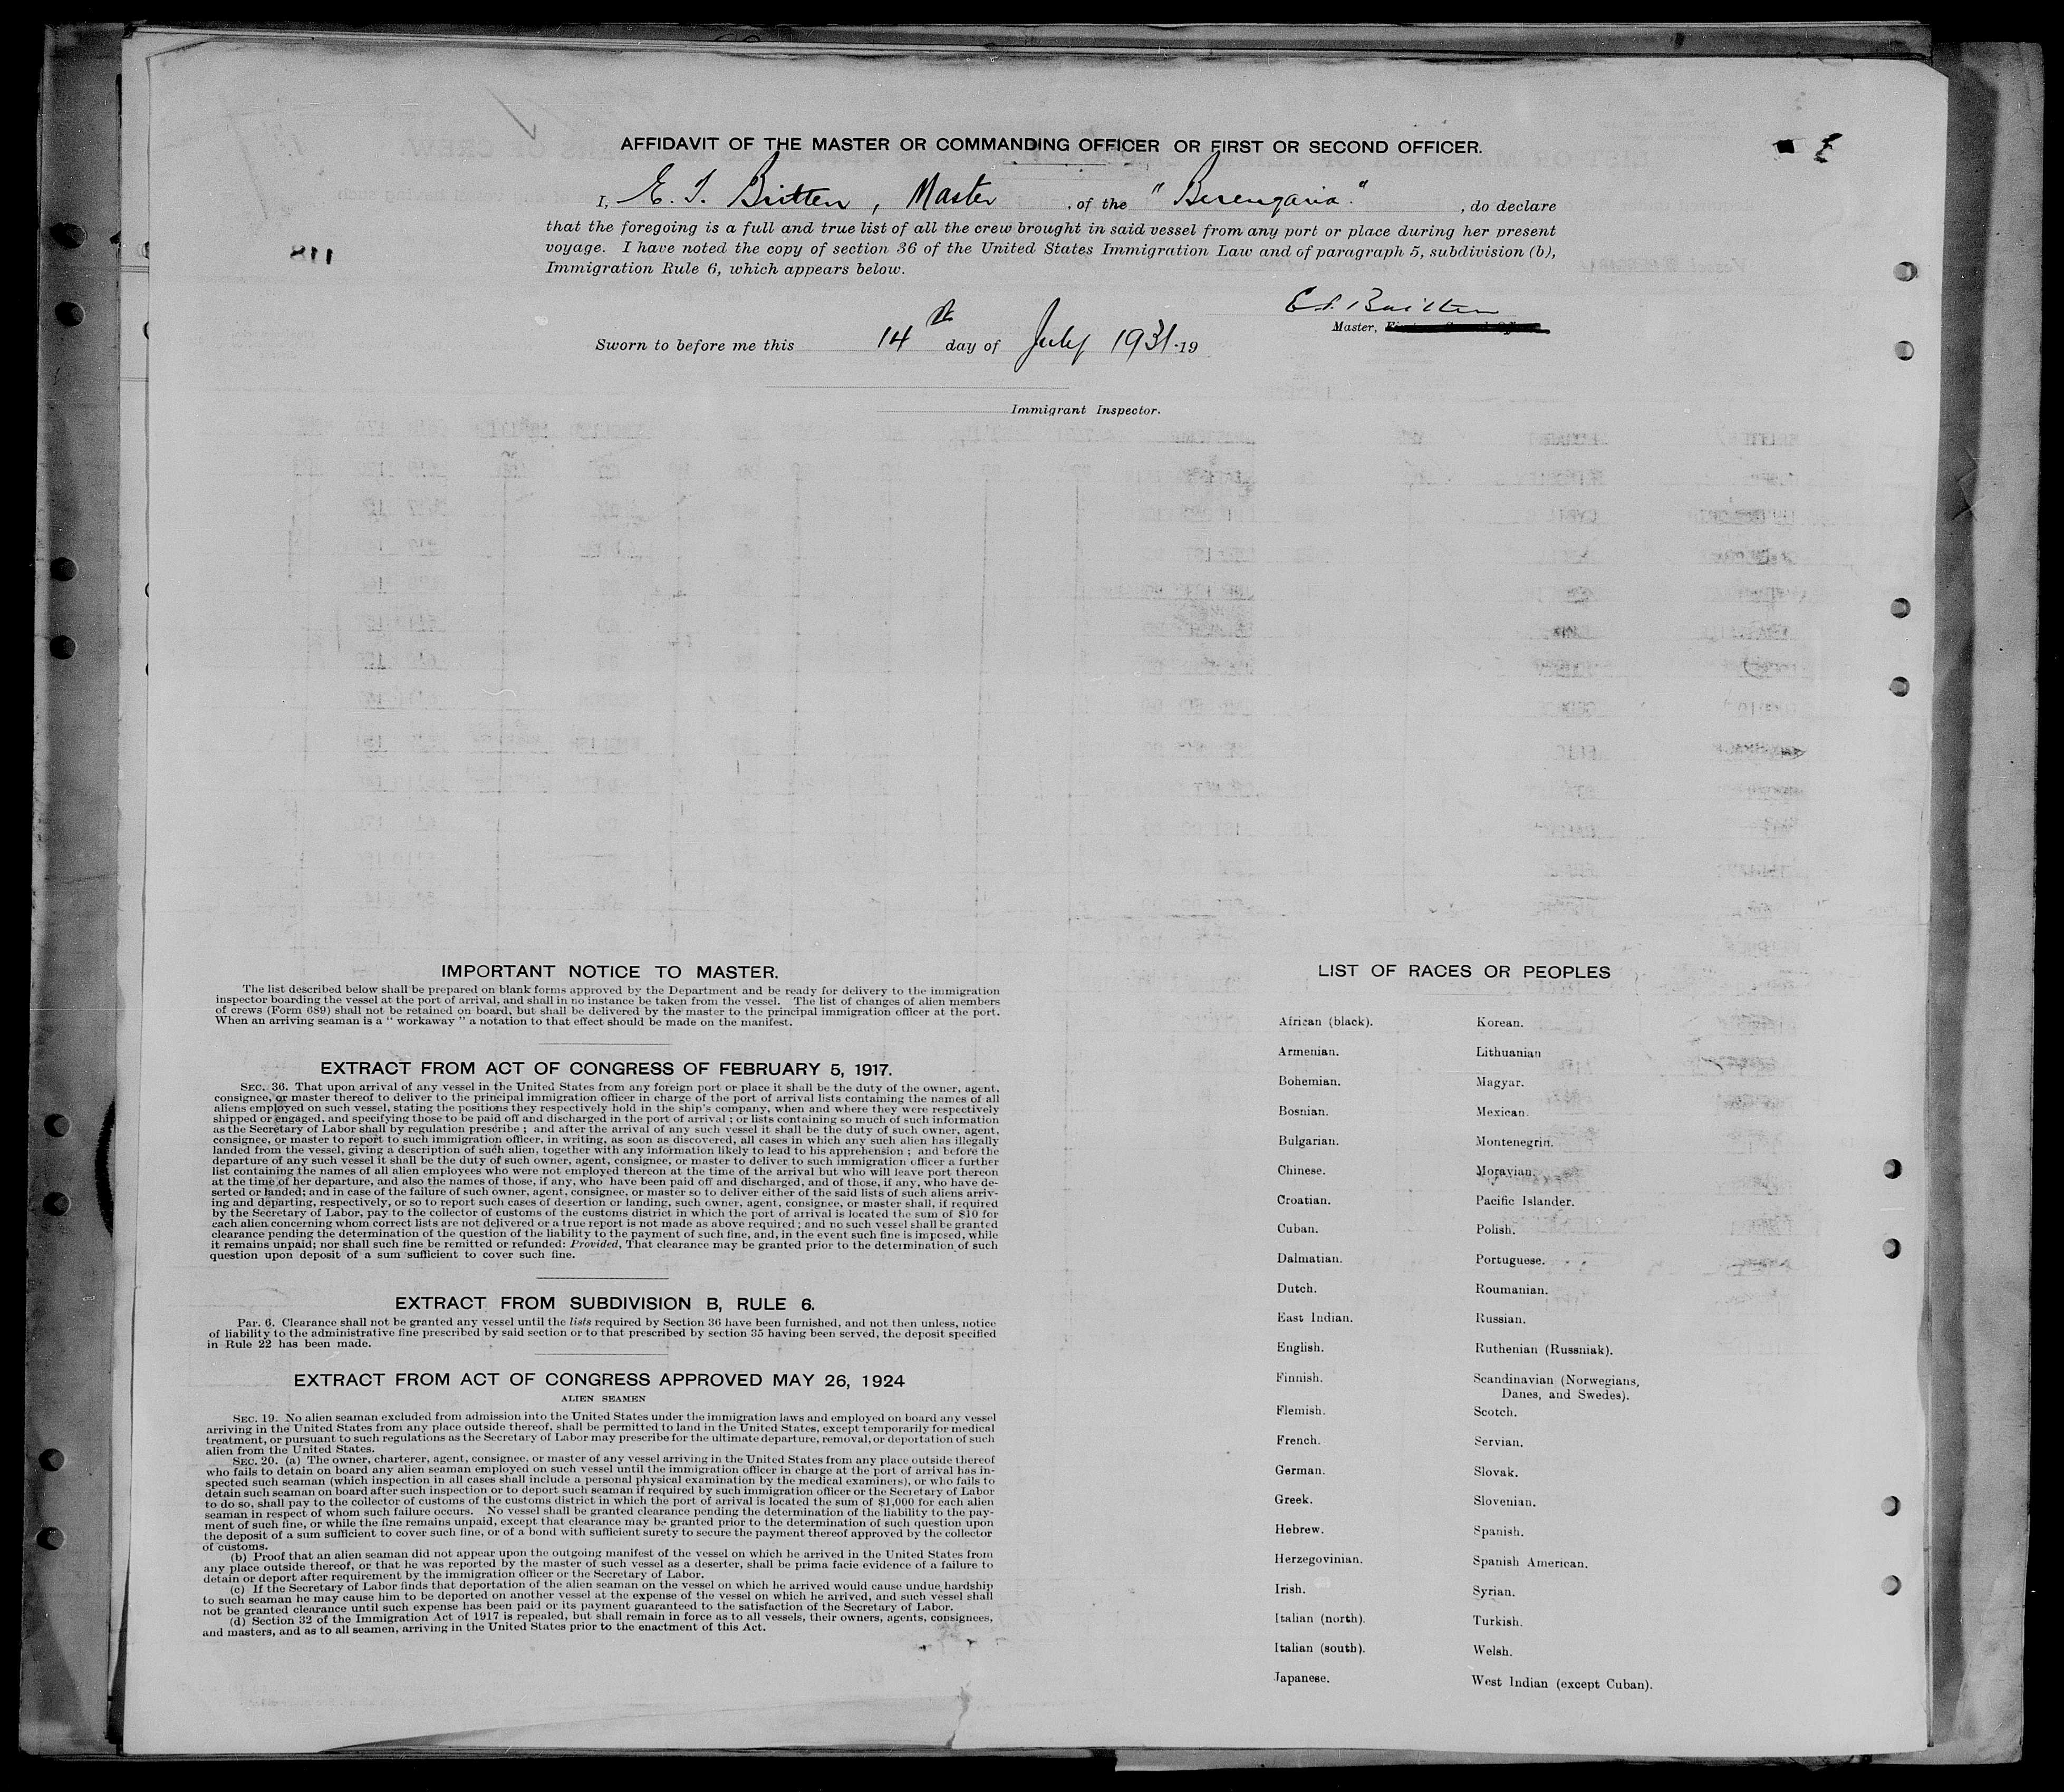 AFFIDAVIT OF THE MASTER OR COMMANDING OFFICER OR FIRST OR SECOND OFFICER.
I, E. T. Britten, Master , of the "Berengaria" , do declare
that the foregoing is a full and true list of all the crew brought in said vessel from any port or place during her present
voyage. I have noted the copy of section 36 of the United States Immigration Law and of paragraph 5, subdivision (b),
Immigration Rule 6, which appears below.
118
E.T. Britten
Master,
Sworn to before me this 14th day of July 1931 19
Immigrant Inspector.
IMPORTANT NOTICE TO MASTER.
The list described below shall be prepared on blank forms approved by the Department and be ready for delivery to the immigration
inspector boarding the vessel at the port of arrival, and shall in no instance be taken from the vessel. The list of changes of alien members
of crews (Form 689) shall not be retained on board, but shall be delivered by the master to the principal immigration officer at the port.
When an arriving seaman is a " workaway " a notation to that effect should be made on the manifest.
EXTRACT FROM ACT OF CONGRESS OF FEBRUARY 5, 1917.
SEC. 36. That upon arrival of any vessel in the United States from any foreign port or place it shall be the duty of the owner, agent,
consignee, or master thereof to deliver to the principal immigration officer in charge of the port of arrival lists containing the names of all
aliens employed on such vessel, stating the positions they respectively hold in the ship's company, when and where they were respectively
shipped or engaged, and specifying those to be paid off and discharged in the port of arrival ; or lists containing so much of such information
as the Secretary of Labor shall by regulation prescribe ; and after the arrival of any such vessel it shall be the duty of such owner, agent,
consignee, or master to report to such immigration officer, in writing, as soon as discovered, all cases in which any such alien has illegally
landed from the vessel, giving a description of such alien, together with any information likely to lead to his apprehension ; and before the
departure of any such vessel it shall be the duty of such owner, agent, consignee, or master to deliver to such immigration officer a further
list containing the names of all alien employees who were not employed thereon at the time of the arrival but who will leave port thereon
at the time of her departure, and also the names of those, if any, who have been paid off and discharged, and of those, if any, who have de-
serted or landed; and in case of the failure of such owner, agent, consignee, or master so to deliver either of the said lists of such aliens arriv-
ing and departing, respectively, or so to report such cases of desertion or landing, such owner, agent, consignee, or master shall, if required
by the Secretary of Labor, pay to the collector of customs of the customs district in which the port of arrival is located the sum of $10 for
each alien concerning whom correct lists are not delivered or a true report is not made as above required ; and no such vessel shall be granted
clearance pending the determination of the question of the liability to the payment of such fine, and, in the event such fine is imposed, while
it remains unpaid; nor shall such fine be remitted or refunded: Provided, That clearance may be granted prior to the determination of such
question upon deposit of a sum sufficient to cover such fine.
EXTRACT FROM SUBDIVISION B, RULE 6.
Par. 6. Clearance shall not be granted any vessel until the lists required by Section 36 have been furnished, and not then unless, notice
of liability to the administrative fine prescribed by said section or to that prescribed by section 35 having been served, the deposit specified
in Rule 22 has been made.
EXTRACT FROM ACT OF CONGRESS APPROVED MAY 26, 1924
ALIEN SEAMEN
SEC. 19. No alien seaman excluded from admission into the United States under the immigration laws and employed on board any vessel
arriving in the United States from any place outside thereof, shall be permitted to land in the United States, except temporarily for medical
treatment, or pursuant to such regulations as the Secretary of Labor may prescribe for the ultimate departure, removal, or deportation of such
alien from the United States.
SEC. 20. (a) The owner, charterer, agent, consignee, or master of any vessel arriving in the United States from any place outside thereof
who fails to detain on board any alien seaman employed on such vessel until the immigration officer in charge at the port of arrival has in-
spected such seaman (which inspection in all cases shall include a personal physical examination by the medical examiners), or who fails to
detain such seaman on board after such inspection or to deport such seaman if required by such immigration officer or the Secretary of Labor
to do so, shall pay to the collector of customs of the customs district in which the port of arrival is located the sum of $1,000 for each alien
seaman in respect of whom such failure occurs. No vessel shall be granted clearance pending the determination of the liability to the pay-
ment of such fine, or while the fine remains unpaid, except that clearance may be granted prior to the determination of such question upon
the deposit of a sum sufficient to cover such fine, or of a bond with sufficient surety to secure the payment thereof approved by the collector
of customs.
(b) Proof that an alien seaman did not appear upon the outgoing manifest of the vessel on which he arrived in the United States from
any place outside thereof, or that he was reported by the master of such vessel as a deserter, shall be prima facie evidence of a failure to
detain or deport after requirement by the immigration officer or the Secretary of Labor.
(c) If the Secretary of Labor finds that deportation of the alien seaman on the vessel on which he arrived would cause undue hardship
to such seaman he may cause him to be deported on another vessel at the expense of the vessel on which he arrived, and such vessel shall
not be granted clearance until such expense has been paid or its payment guaranteed to the satisfaction of the Secretary of Labor.
(d) Section 32 of the Immigration Act of 1917 is repealed, but shall remain in force as to all vessels, their owners, agents, consignees,
and masters, and as to all seamen, arriving in the United States prior to the enactment of this Act.
LIST OF RACES OR PEOPLES
African (black). Korean.
Armenian. Lithuanian
Bohemian. Magyar.
Bosnian. Mexican.
Bulgarian. Montenegrin.
Chinese. Moravian.
Croatian. Pacific Islander.
Cuban. Polish.
Dalmatian. Portuguese.
Dutch. Roumanian.
East Indian. Russian.
English. Ruthenian (Russniak).
Finnish. Scandinavian (Norwegians,
Danes, and Swedes).
Flemish. Scotch.
French. Servian.
German. Slovak.
Greek. Slovenian.
Hebrew. Spanish.
Herzegovinian. Spanish American.
Irish. Syrian.
Italian (north). Turkish.
Italian (south). Welsh.
Japanese. West Indian (except Cuban).